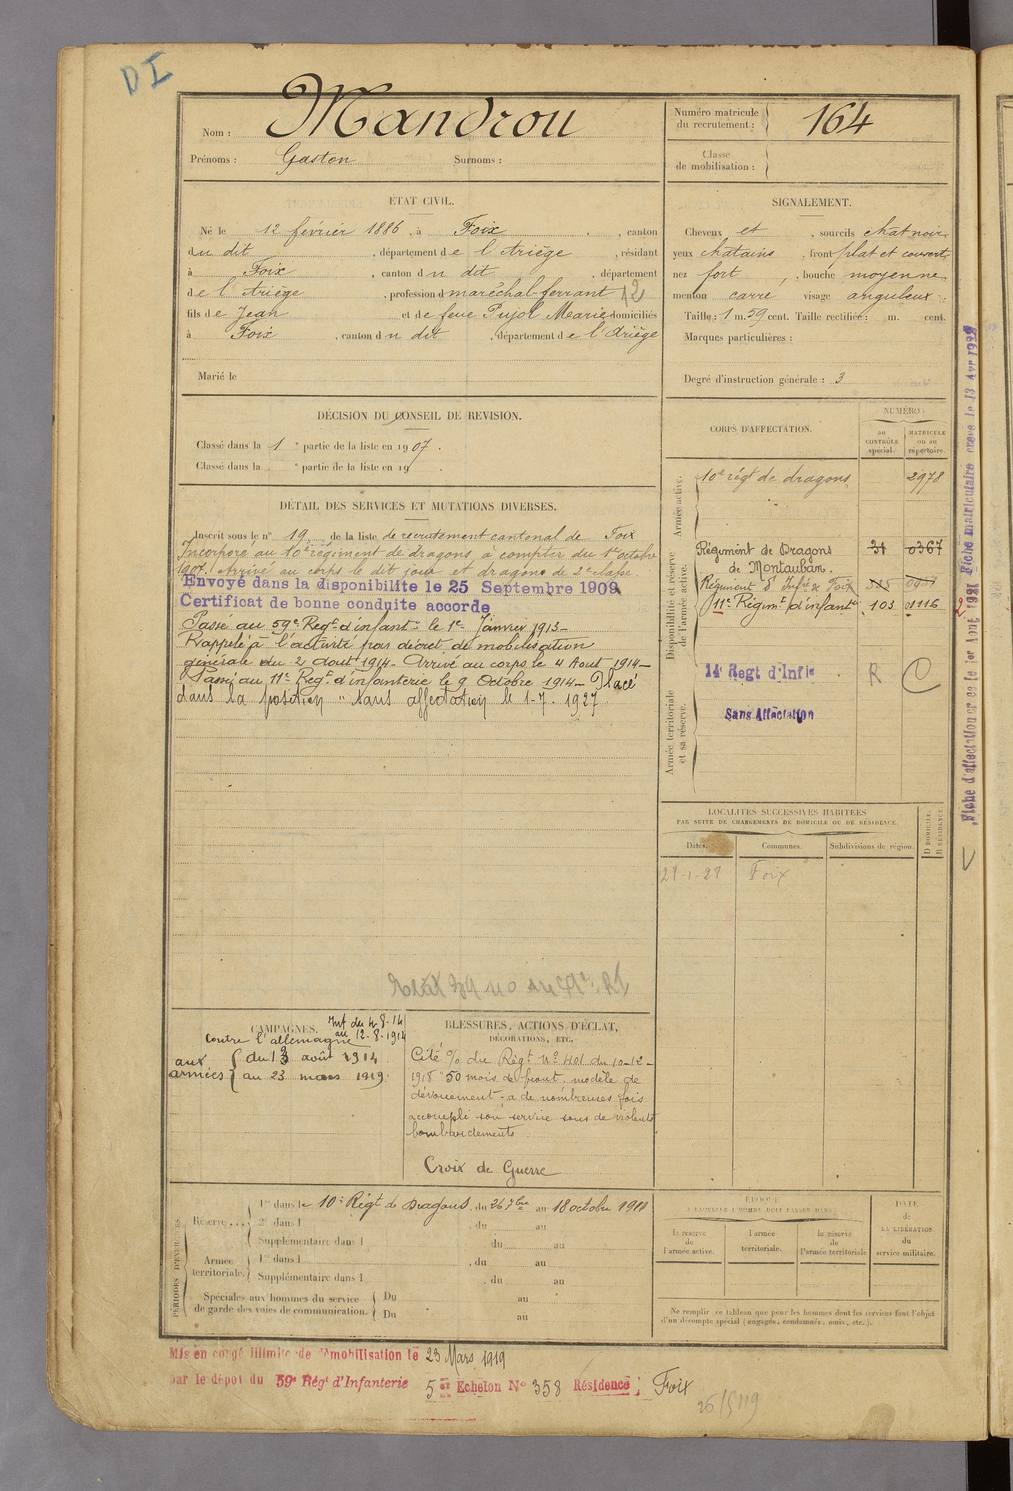 DI
Nom : Mandrou
Prénoms : Gaston Surnoms :
Numéro matricule
du recrutement : 164
Classe
de mobilisation :
ÉTAT CIVIL.
Né le 12 février 1886, à Foix, canton
du dit, département de l'Ariège, résidant
à Foix, canton du dit, département
de l'Ariège, profession d maréchal-ferrant 12
fils de Jean et de feue Pujol Marie domiciliés
à Foix, canton du dit, département de l'Ariège
Marié le
SIGNALEMENT.
Cheveux et, sourcils chat noir,
yeux chatains, front plat et couvert,
nez fort, bouche moyenne,
menton carré visage anguleux :
Taille : 1 m. 59 cent. Taille rectifiée : m. cent.
Marques particulières :
Degré d'instruction générale : 3
DÉCISION DU CONSEIL DE REVISION.
Classé dans la 1 e partie de la liste en 1907.
Classé dans la e partie de la liste en 19 .
DÉTAIL DES SERVICES ET MUTATIONS DIVERSES.
Inscrit sous le n° 19 de la liste de recrutement cantonal de Foix
Incorporé au 10e régiment de dragons à compter du 1er octobre
1907. Arrivé au corps le dit jour et dragon de 2e classe
Envoyé dans la disponibilité le 25 Septembre 1909
Certificat de bonne conduite accordé
Passé au 59e Regt d'infantie le 1er Janvier 1913 –
Rappelé à l'activité par décret de mobilisation
générale du 2 Aout 1914 – Arrivé au corps le 4 Aout 1914 –
Passé au 11e Regt d'infanterie le 9 Octobre 1914 – Placé
dans la position " Sans affectation le 1-7. 1927
CORPS D'AFFECTATION.
NUMÉRO
au
CONTRÔLE
spécial.
MATRICULE
ou au
répertoire.
Armée active.
10e régt de dragons 2978
Disponibilité et réserve
de l'armée active.
Régiment de Dragons 31 0367
de Montauban.
Régiment d'Infie de Foix
11e Régimt d'infantie 103 01116
Armée territoriale
et sa réserve.
14e Regt d'Infie R C
Sans Affectation
LOCALITÉS SUCCESSIVES HABITÉES
PAR SUITE DE CHANGEMENTS DE DOMICILE OU DE RÉSIDENCE.
Dates. Communes. Subdivisions de région. D DOMICILE. R RÉSIDENCE.
21-1-28 Foix
CAMPAGNES.
Int du 4-8-14
au 12-8-1914
Contre l'allemagne
aux armées { du 13 août 1914
au 23 mars 1919.
BLESSURES, ACTIONS D'ÉCLAT,
DÉCORATIONS, ETC.
Cité % du Régt N° 401 du 10-12-
1918 "50 mois de front, modèle de
dévouement ; a de nombreuses fois
accompli son service sous de violents
bombardements
Croix de Guerre
PÉRIODES D'EXERCICES
Réserve . . . . 1re dans le 10e Régt de Dragons, du 26 7bre au 18 octobre 1911
2e dans l , du au
Supplémentaire dans l du au
Armée
territoriale. 1re dans l , du au
Supplémentaire dans l , du au
Spéciales aux hommes du service
de garde des voies de communication. Du au
Du au
ÉPOQUE
À LAQUELLE L'HOMME DOIT PASSER DANS :
la réserve
de
l'armée active.
l'armée
territoriale.
la réserve
de
l'armée territoriale
DATE
de
LA LIBÉRATION
du
service militaire.
Ne remplir ce tableau que pour les hommes dont les services font l'objet
d'un décompte spécial (engagés, condamnés, omis, etc.).
Mis en congé illimité de démobilisation le 23 Mars 1919
par le dépôt du 59e Régt d'Infanterie 5e Echelon N° 358 Résidence : Foix
Fiche d'affectation créée le 1er Aout 1921 Fiche matriculaire créée le 13 Avr 1922